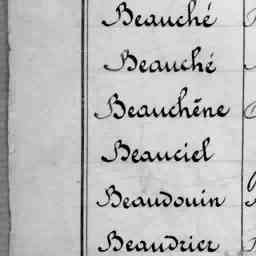 Beauché
Beauché
Beauchêne
Beauciel
Beaudouin
Beaudrier